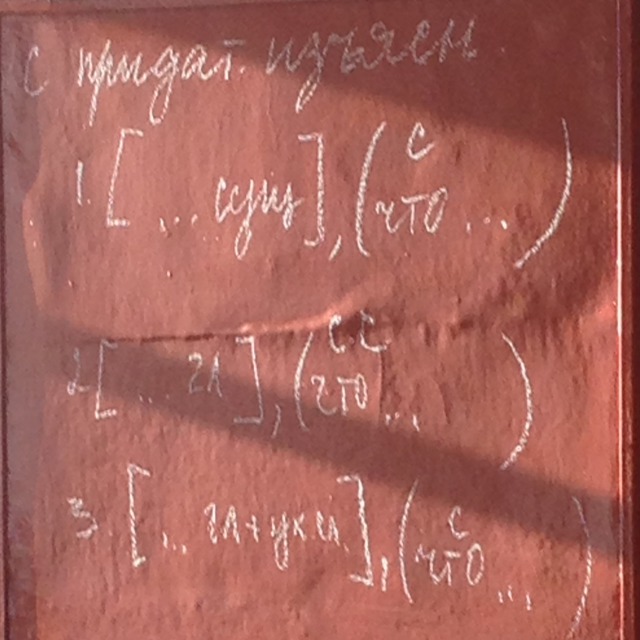 с придат. изъясн.
с
1. [ ... сущ ], ( что ... )
с.с
2. [ ... гл ], ( что ... )
с
3. [ ... гл + ук.м. ], ( что ... )